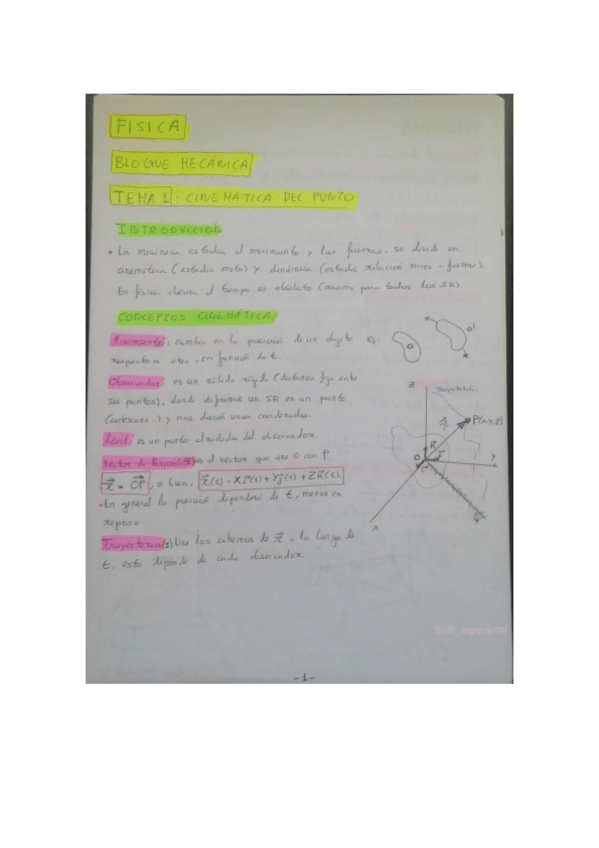 FISICA
BLOQUE MECÁNICA
TEMA 1: CINEMÁTICA DEL PUNTO
INTRODUCCIÓN
• La mecánica estudia el movimiento y las fuerzas. se divide en
cinemática (estudia mvto) y dinámica (estudia relación mvto - fuerzas).
En física clásica el tiempo es absoluto (mismo para todos los SR)
CONCEPTOS CINEMÁTICA
Movimiento: cambio en la posición de un objeto
respecto a otro, en función de t.
Observador: es un sólido rígido (distancia fija entre
sus puntos), donde definimos un SR en un punto
(cartesiano) y nos dará unas coordenadas.
es un punto alrededor del observador.
Vector de Posición (r): es el vector que une O con P
r = OP, o bien, r(t) = Xi(t) + Yj(t) + ZK(t)
• En general la posición dependerá de t, menos en
reposo.
Trayectoria(s): Une los extremos de r a lo largo de
t, esto depende de cada observador.
O
O'
Z
Trayectoria
r
P(x,y,z)
K
O
Y
X
Wolf_Ingenieros
-1-